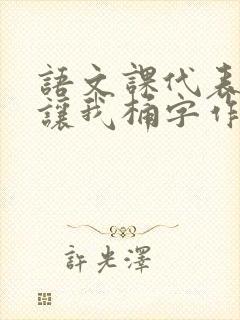 語文課代表
讓我桶字作
許光澤